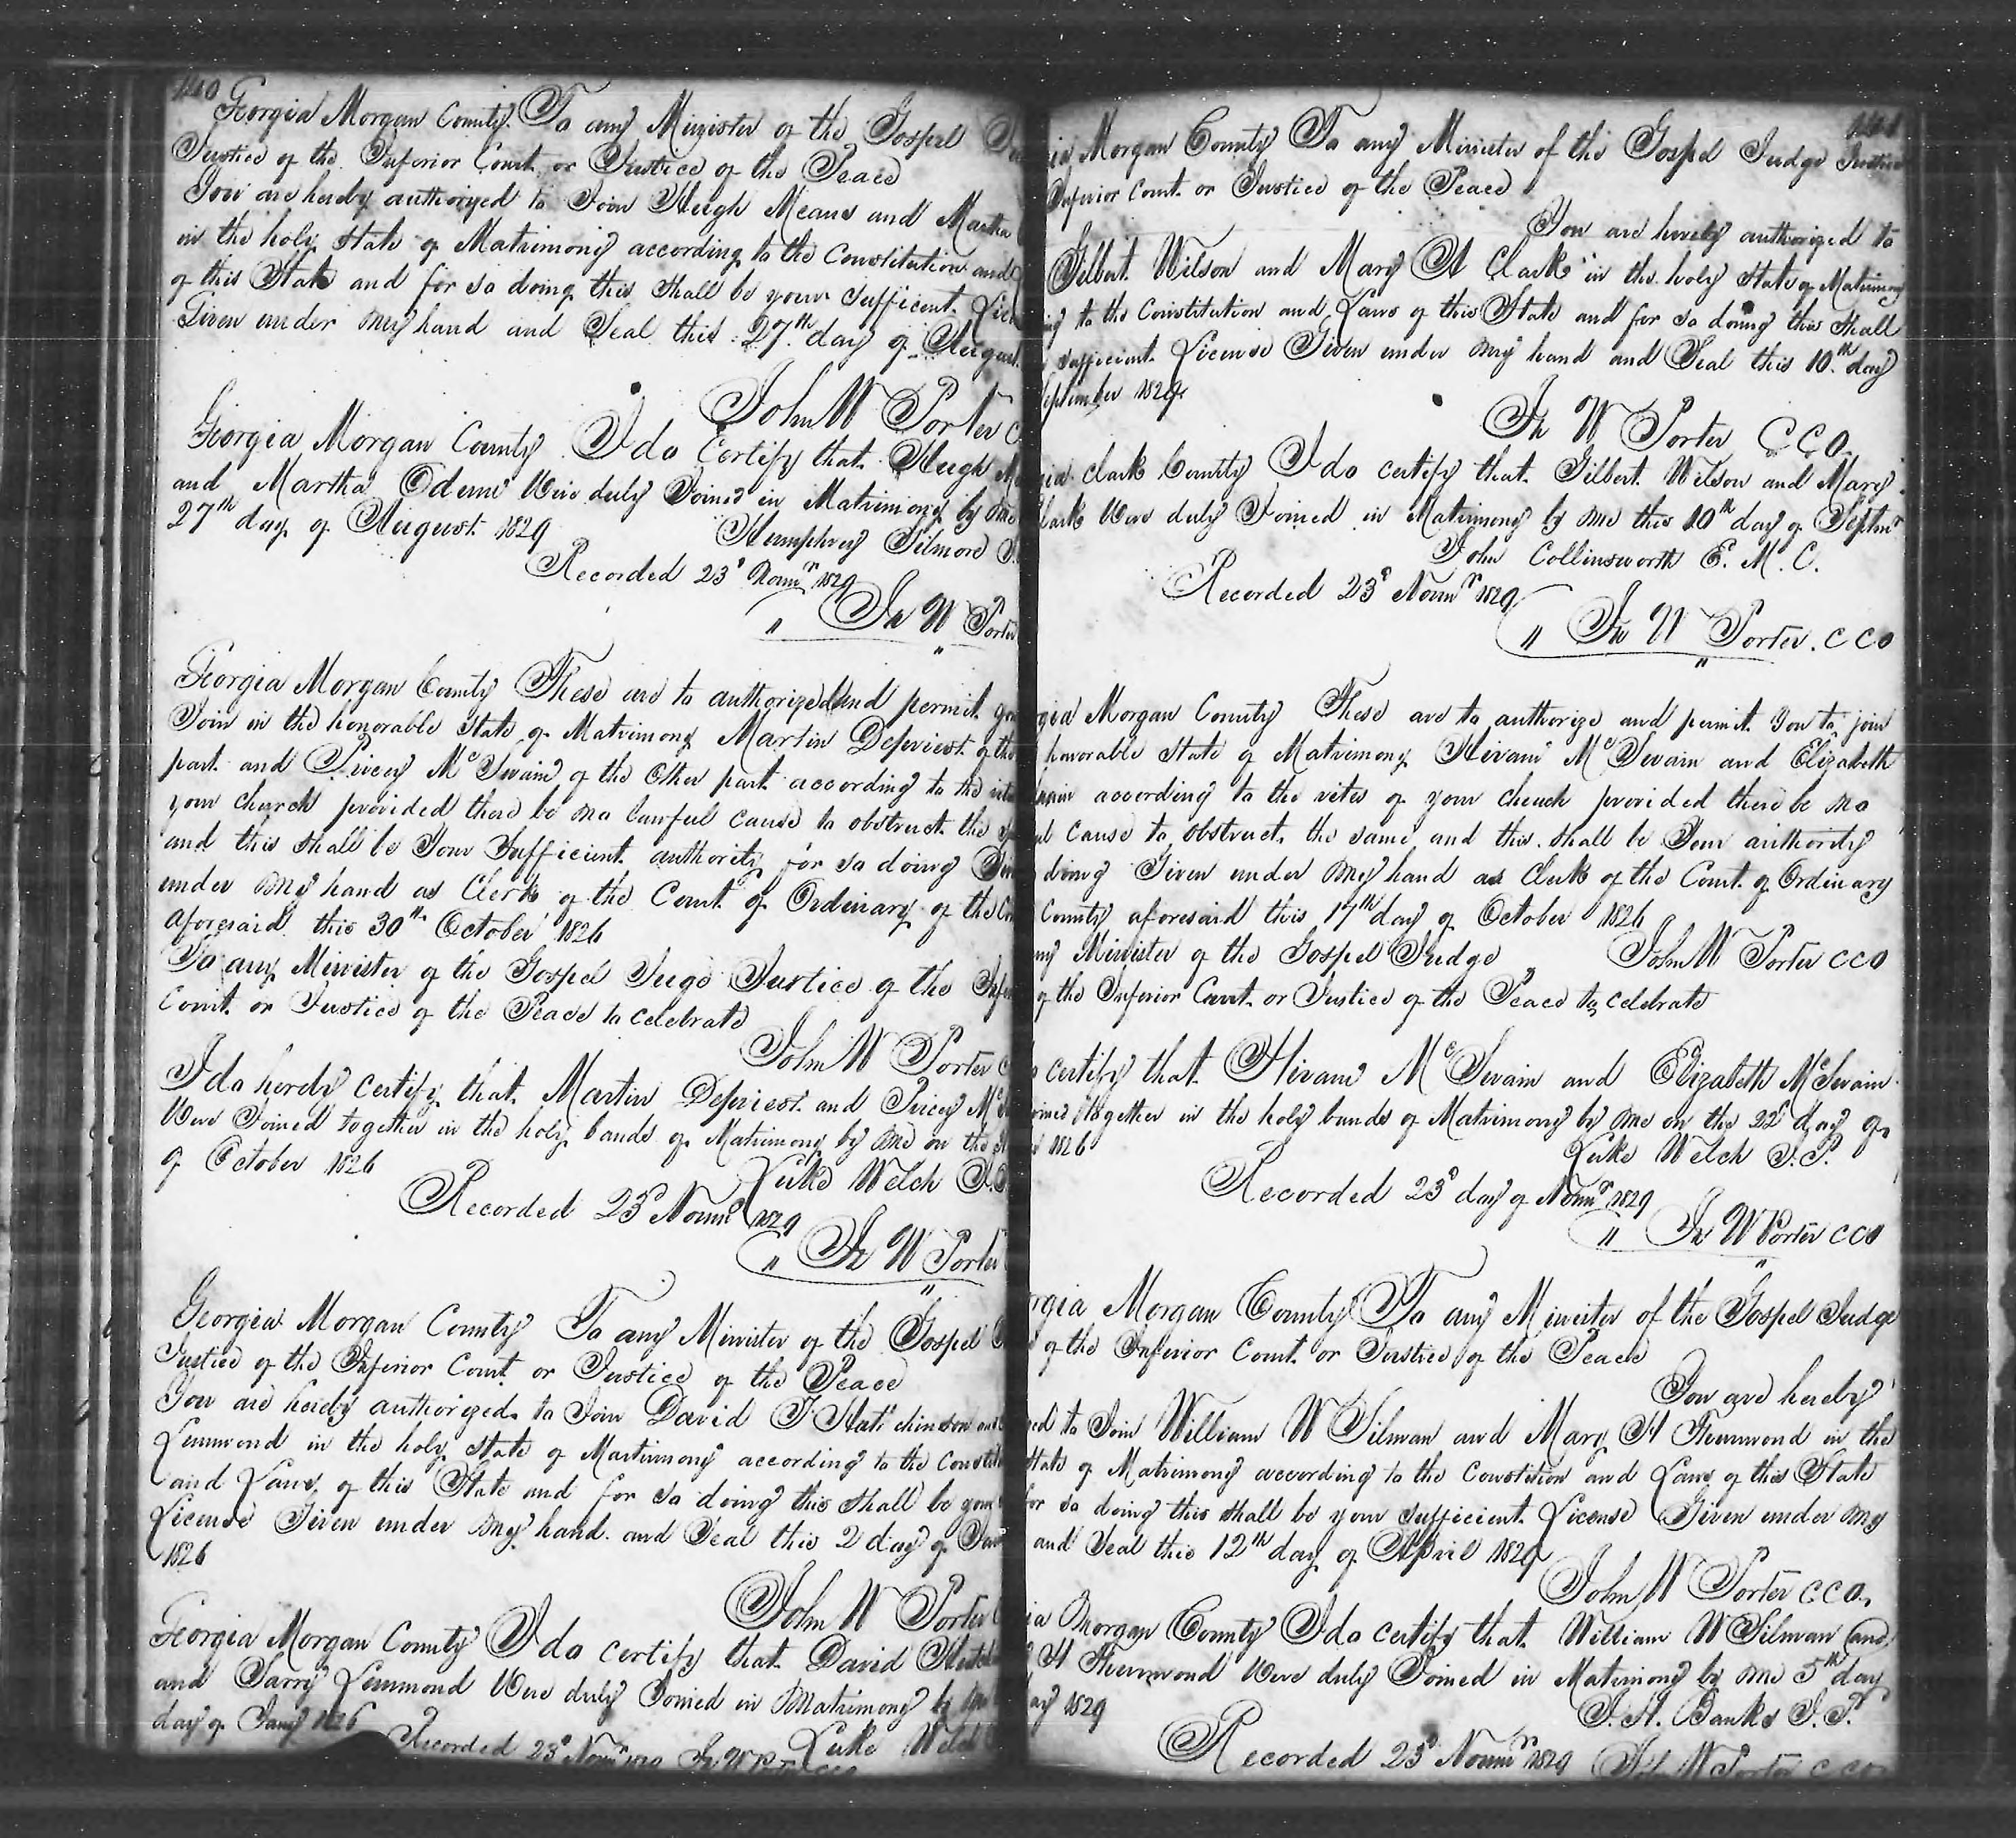 140
Georgia Morgan County. To any Minister of the Gospel
Justice of the Inferior Court or Justice of the Peace
You are hereby authorized to Join Hugh Means and Martha
in the holy state of Matrimony according to the Constitution and
of this State and for so doing this shall be your sufficient
Given under my hand and Seal this 27th day of August
John W Porter
Georgia Morgan County I do Certify that Hugh
and Martha Odem Were duly Joined in Matrimony by me
27th day of August 1829
Humphrey Gilmore
Recorded 23d Novmr 1829
" Jn W Porter
"
Georgia Morgan County These are to authorized and permit you
Join in the honorable State of Matrimony Martin Depriest of the
part and Piercy McSwain of the Other part according to the
your church provided there be no lawful cause to obstruct the
and this shall be Your Sufficient authority for so doing
under my hand as Clerk of the Court of Ordinary of the
aforesaid this 30th October 1826
To any Minister of the Gospel Juge Justice of the
Court or Justice of the Peace to celebrate
John W Porter
I do hereby certify that Martin Depriest and Piercy
Were Joined together in the holy bands of Matrimony by me on the
of October 1826
Luke Welch
Recorded 23d Novmr 1829
" Jn W Porter
"
Georgia Morgan County To any Minister of the Gospel
Justice of the Inferior Court or Justice of the Peace
You are hereby authorized to Join David
Lummond in the holy state of Martimony according to the
and Laws of this State and for so doing this shall be your
License Given under my hand and Seal this 2 day of
1826
John W Porter
Georgia Morgan County I do certify that David
and Sarry Lummond Were duly Joined in Matrimony by me
day of Jany 1826
Luke Welch
Recorded 23d Novmr 1829
141
Morgan County To any Minister of the Gospel Judge Justice
Inferior Court or Justice of the Peace
You are hereby authorized to
Gilbert Wilson and Mary A Clark in the holy state of Matrimony
to the Constitution and Laws of this State and for so doing this shall
sufficient License Given under my hand and Seal this 10th day
September 1829
Jn W Porter C C O.
Clark County I do certify that Gilbert Wilson and Mary
Clark Were duly Joined in Matrimony by me this 10th day of Septmr
John Collinsworth E. M. C.
Recorded 23d Novmr 1829
" Jn W Porter. C C O
"
Morgan County These are to authorize and permit You to join
honorable state of Matrimony Hiram McSwain and Elizabeth
according to the rites of your church provided there be no
cause to obstruct the same and this shall be Your authority
doing Given under my hand as Clerk of the Court of Ordinary
County aforesaid this 17th day of October 1826
John W Porter C C O
Minister of the Gospel Judge
of the Inferior Court or Justice of the Peace to celebrate
certify that Hiram McSwain and Elizabeth McSwain
together in the holy bands of Matrimony by me on the 22d day of
1826
Luke Welch J. P.
Recorded 23d day of Novmr 1829
" Jn W Porter C C O
"
Morgan County To any Minister of the Gospel Judge
of the Inferior Court or Justice of the Peace
You are hereby
to Join William W Silman and Mary H Thurmond in the
State of Matrimony according to the Constition and Laws of this State
for so doing this shall be your sufficient License Given under my
and Seal this 12th day of April 1829
John W Porter C C O.
Morgan County I do certify that William W Silman and
H Thurmond Were duly Joined in Matrimony by me 5th day
1829
J. H. Banks J. P.
Recorded 23d Novmr 1829 John W Porter C C O